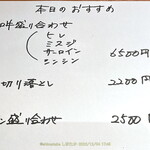 本日のおすすめ
盛り合わせ
ヒレ
ミスジ
サーロイン
シンシン 6500円
切り落とし 2200円
盛り合わせ 2500円